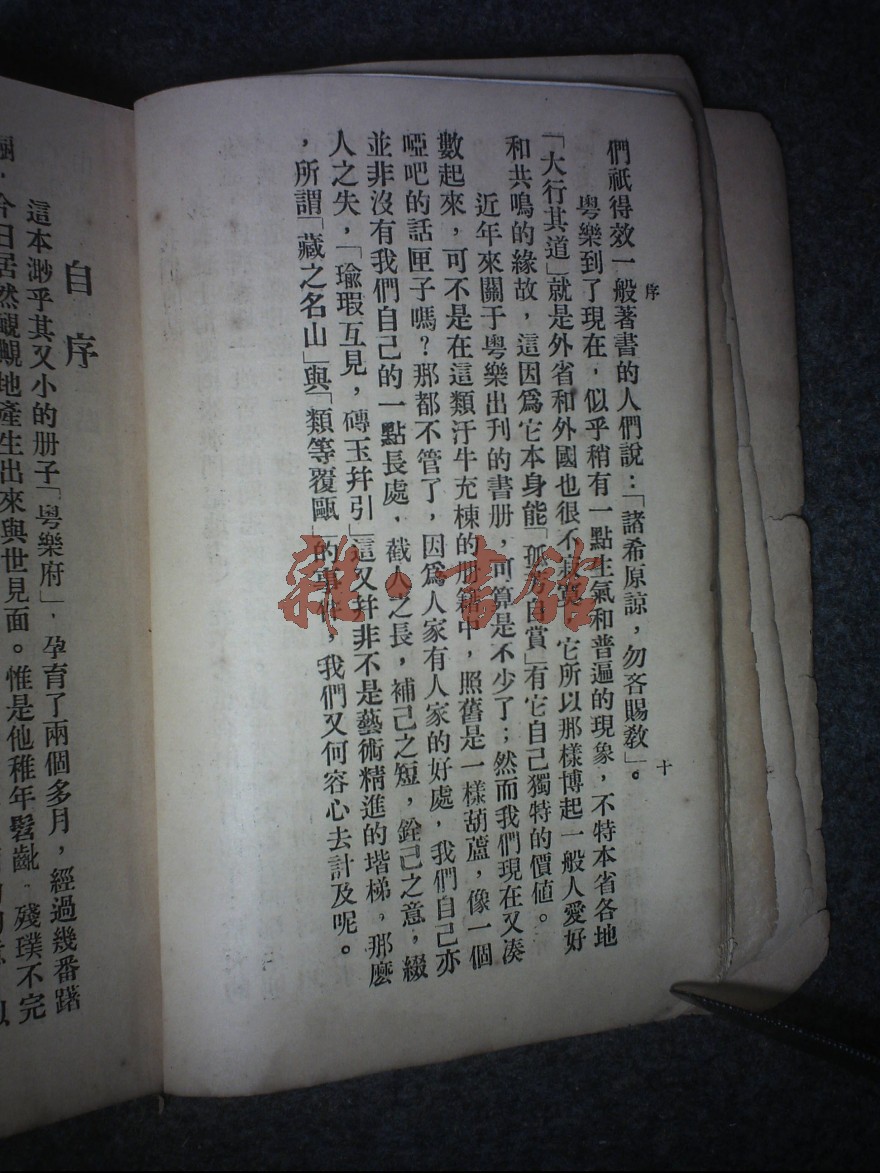 序
十
們祇得效一般著書的人們說：「諸希原諒，勿吝賜教」。
粵樂到了現在，似乎稍有一點生氣和普遍的現象，不特本省各地
「大行其道」就是外省和外國也很不寂寞，它所以那樣博起一般人愛好
和共鳴的緣故，這因爲它本身能「孤芳自賞」有它自己獨特的價値。
近年來關于粵樂出刊的書册，可算是不少了；然而我們現在又湊
數起來，可不是在這類汗牛充棟的册籍中，照舊是一樣葫蘆，像一個
啞吧的話匣子嗎？那都不管了，因爲人家有人家的好處，我們自己亦
並非沒有我們自己的一點長處，截人之長，補己之短，銓己之意，綴
人之失，「瑜瑕互見，磚玉幷引」這又幷非不是藝術精進的堦梯，那麽
，所謂「藏之名山」與「類等覆甌」的事，我們又何容心去計及呢。
自序
這本渺乎其又小的册子「粵樂府」，孕育了兩個多月，經過幾番躇
今日居然靦覥地產生出來與世見面。惟是他稚年髫齔，殘璞不完
雜·書館